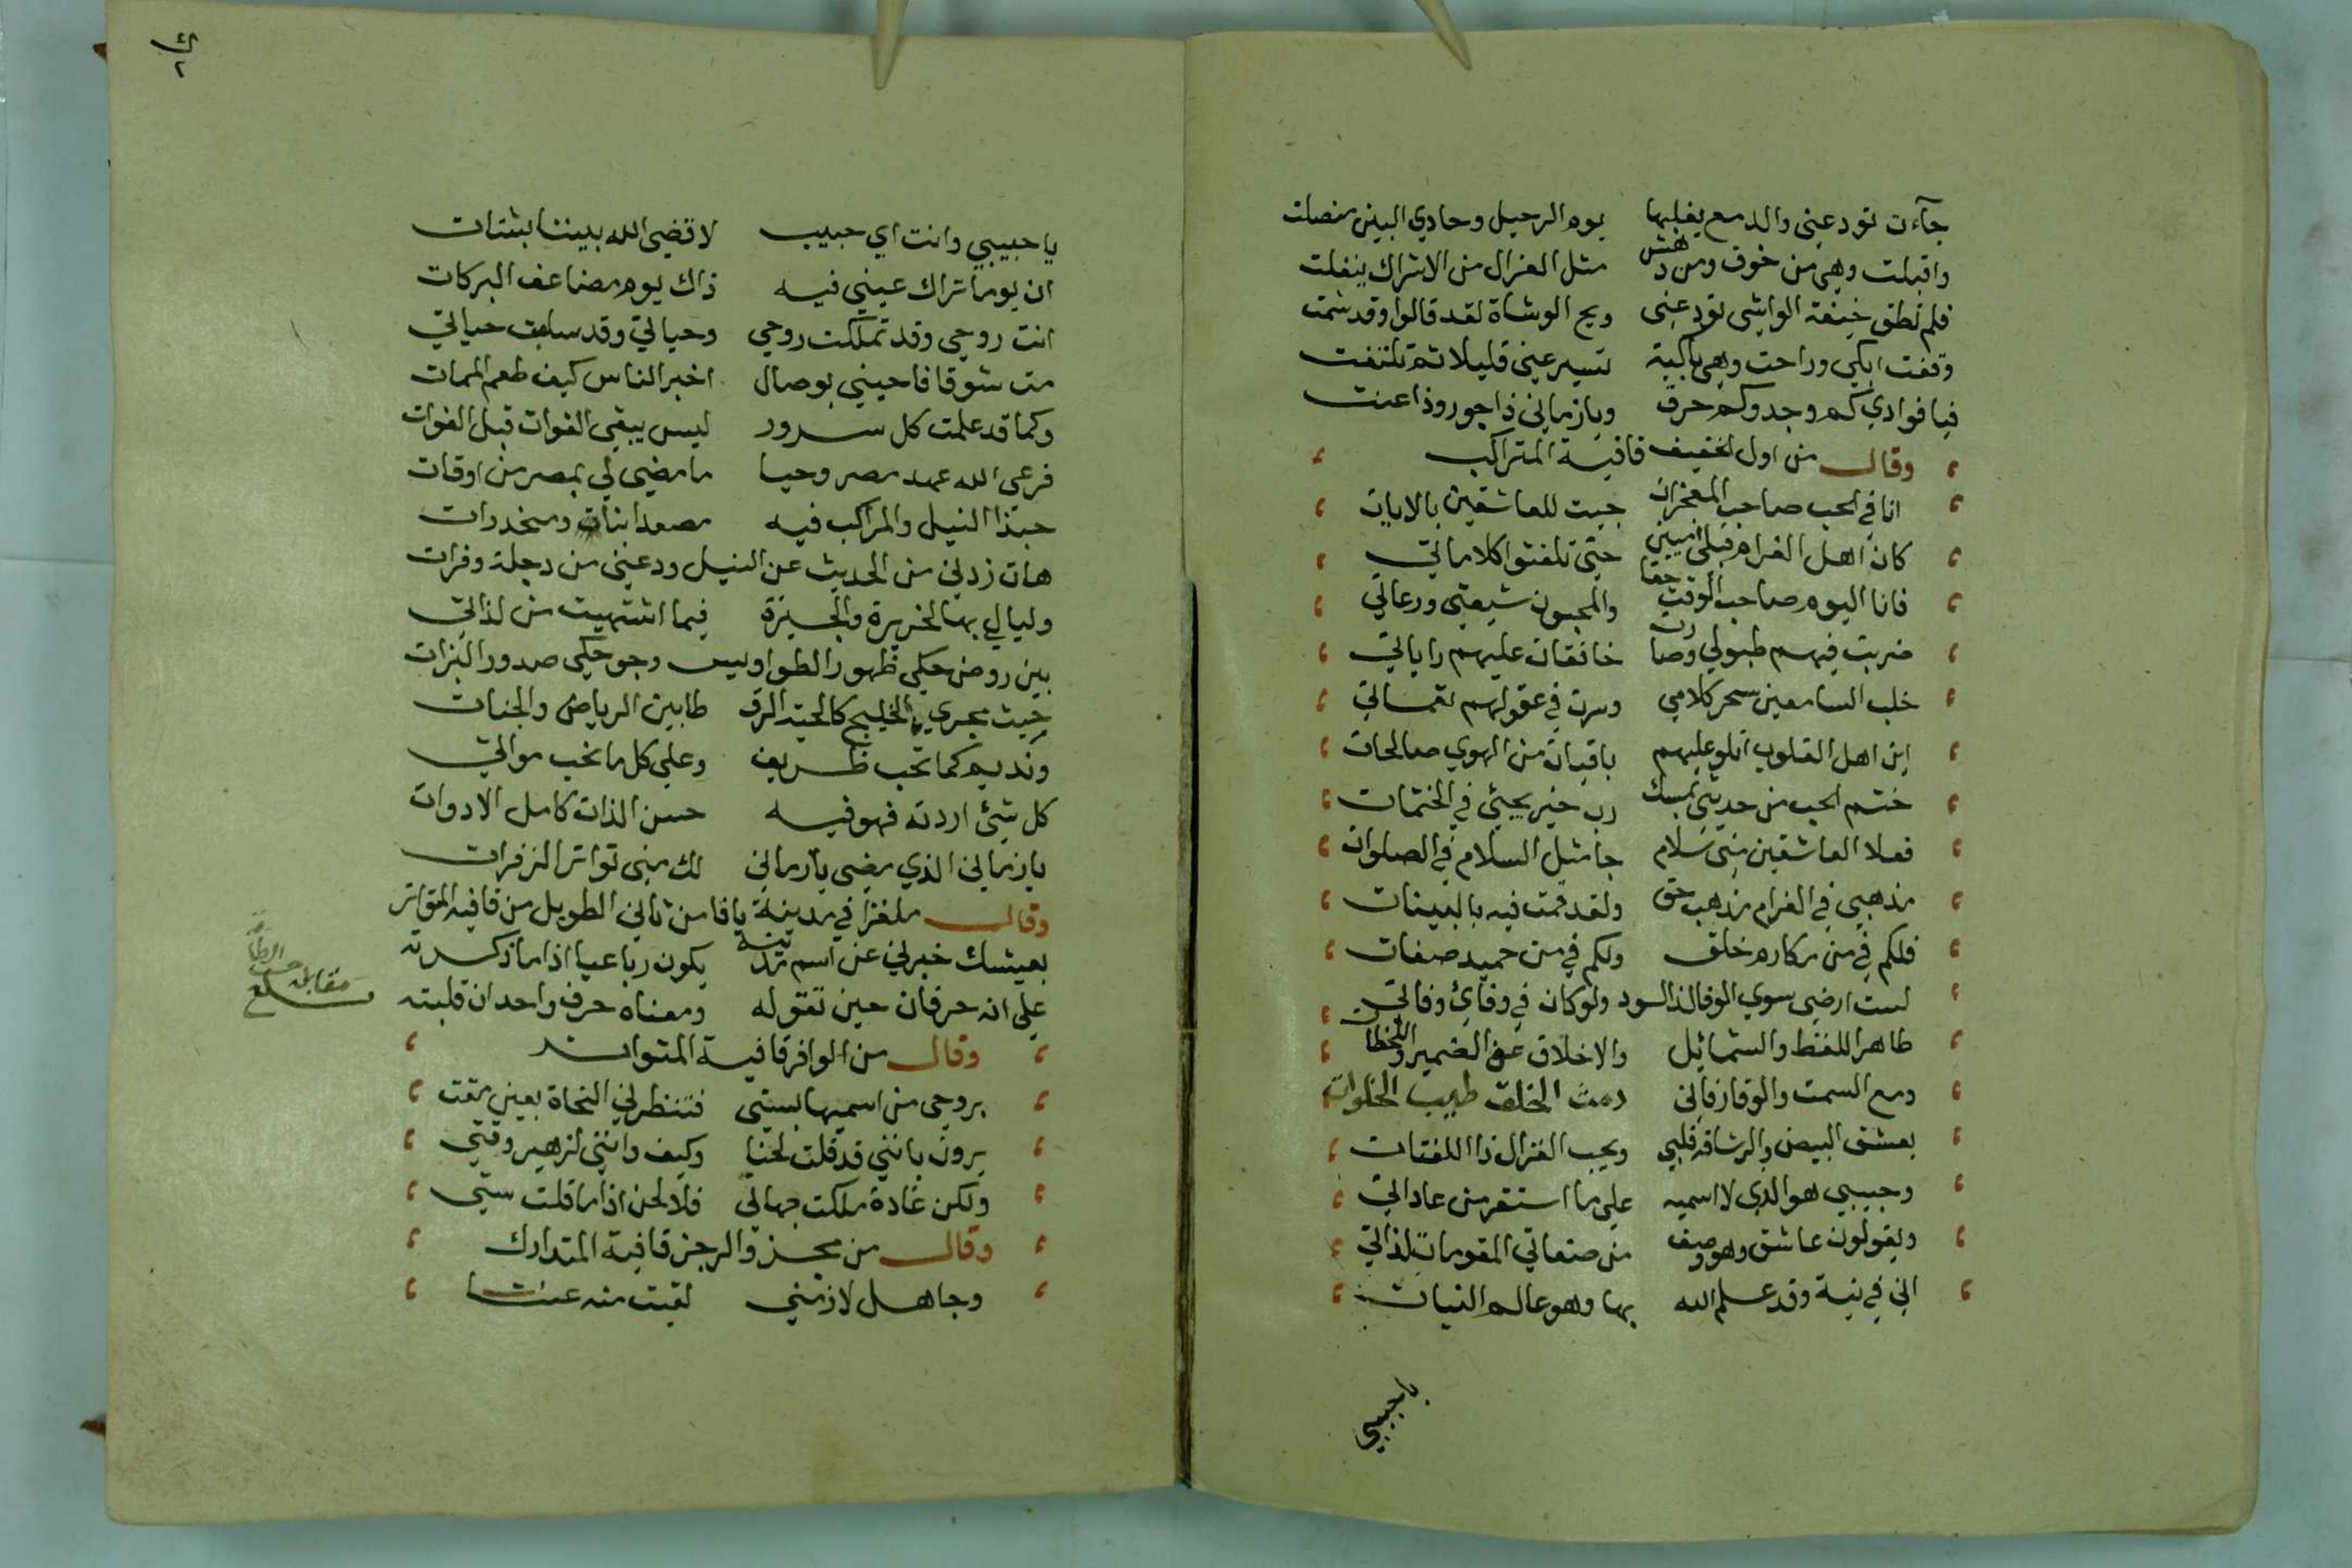 جآءت تودعنى والدمع يغلبها يوم الرحيل وحادي البين منصلت
واقبلت وهي من خوف ومن دهش مثل الغزال من الاشراك ينفلت
فلم تطق خيفة الواشى تودعنى ويح الوشاة لقد قالوا وقد شمت
وقفت ابكي وراحت وهي باكية تسير عنى قليلا ثم تلتفت
فيا فوادي كم وجد وكم حرق ويازماني ذا جور وذا عنت
وقال من اول الخفيف قافية المتراكب
انا في الحب صاحب المعجزات جيت للعاشقين بالايات
كان اهل الغرام قبلى اميين حتى تلقنوا كلاماتي
فانا اليوم صاحب الوقت حقا والمحبون شيعتى ورعاتي
ضربت فيهم طبولي وصارت خافقات عليهم راياتي
خلب السامعين سحر كلامي وسرت في عقولهم نغماتي
اين اهل القلوب اتلو عليهم باقيات من الهوي صالحات
ختم الحب من حديثى بمسك رب خير يجيئ في الختمات
فعلا العاشقين منى سلام جا مثل السلام في الصلوات
مذهبي في الغرام مذهب حق ولقد قمت فيه بالبينات
فلكم في من مكارم خلق ولكم في من حميد صفات
لست ارضي سوي الوفا لذا الود ولو كان في وفائ وفاتي
طاهر اللفظ والشمائل والاخلاق عف الضمير واللحظات
ومع السمت والوقار فاني دمث الخلق طيب الخلوات
يعشق البيض والرشاقه قلبي ويحب الغزال ذا اللفتات
وحبيبي هو الذي لا اسميه على ما استقر من عاداتي
ويقولون عاشق وهو وصف من صفاتي المقومات لذاتي
انى في نية وقد علم الله بها وهو عالم النيات
ياحبيبي
يا حبيبي وانت اي حبيب لا قضى الله بيننا بشتات
ان يوما تراك عيني فيه ذاك يوم مضاعف البركات
انت روحي وقد تملكت روحي وحياتي وقد سلبت حياتي
مت شوقا فاحيني بوصال اخبر الناس كيف طعم الممات
وكما قد علمت كل سرور ليس يبقى الفوات قبل الفوات
فرعى الله عهد مصر وحيا ما مضي لي بمصر من اوقات
حبذا النيل والمراكب فيه مصعدات بنا ومنحدرات
هات زدني من الحديث عن النيل ودعنى من دجلة وفرات
وليالي بها لجزيرة والجيزة فيما اشتهيت من لذاتي
بين روض حكى ظهور الطواويس وجو حكي صدور البزات
حيث مجري الخليج كالحية الرقطا بين الرياض والجنات
ونديم كما تحب ظريف وعلي كل ما تحب مواتي
كل شئ اردته فهو فيه حسن الذات كامل الادوات
يازماني الذي مضى يا زماني لك منى تواتر الزفرات
وقال ملغزا في مدينة يافا من ثاني الطويل من قافيه المتواتر
بعيشك خبرني عن اسم مدينة يكون رباعيا اذا ما ذكرته
على انه حرفان حين تقوله ومعناه حرف واحد ان قلبته
وقال من الوافر قافية المتواتر
بروحي من اسميها بستى فتنظرني النحاة بعين مقت
يرون بانني قد قلت لحنا وكيف وانني لزهير وقتى
ولكن غادة ملكت جهاتي فلا لحن اذا ما قلت ستي
وقال من مجزو الرجز قافية المتدارك
وجاهل لازمني لقيت منه عنتا